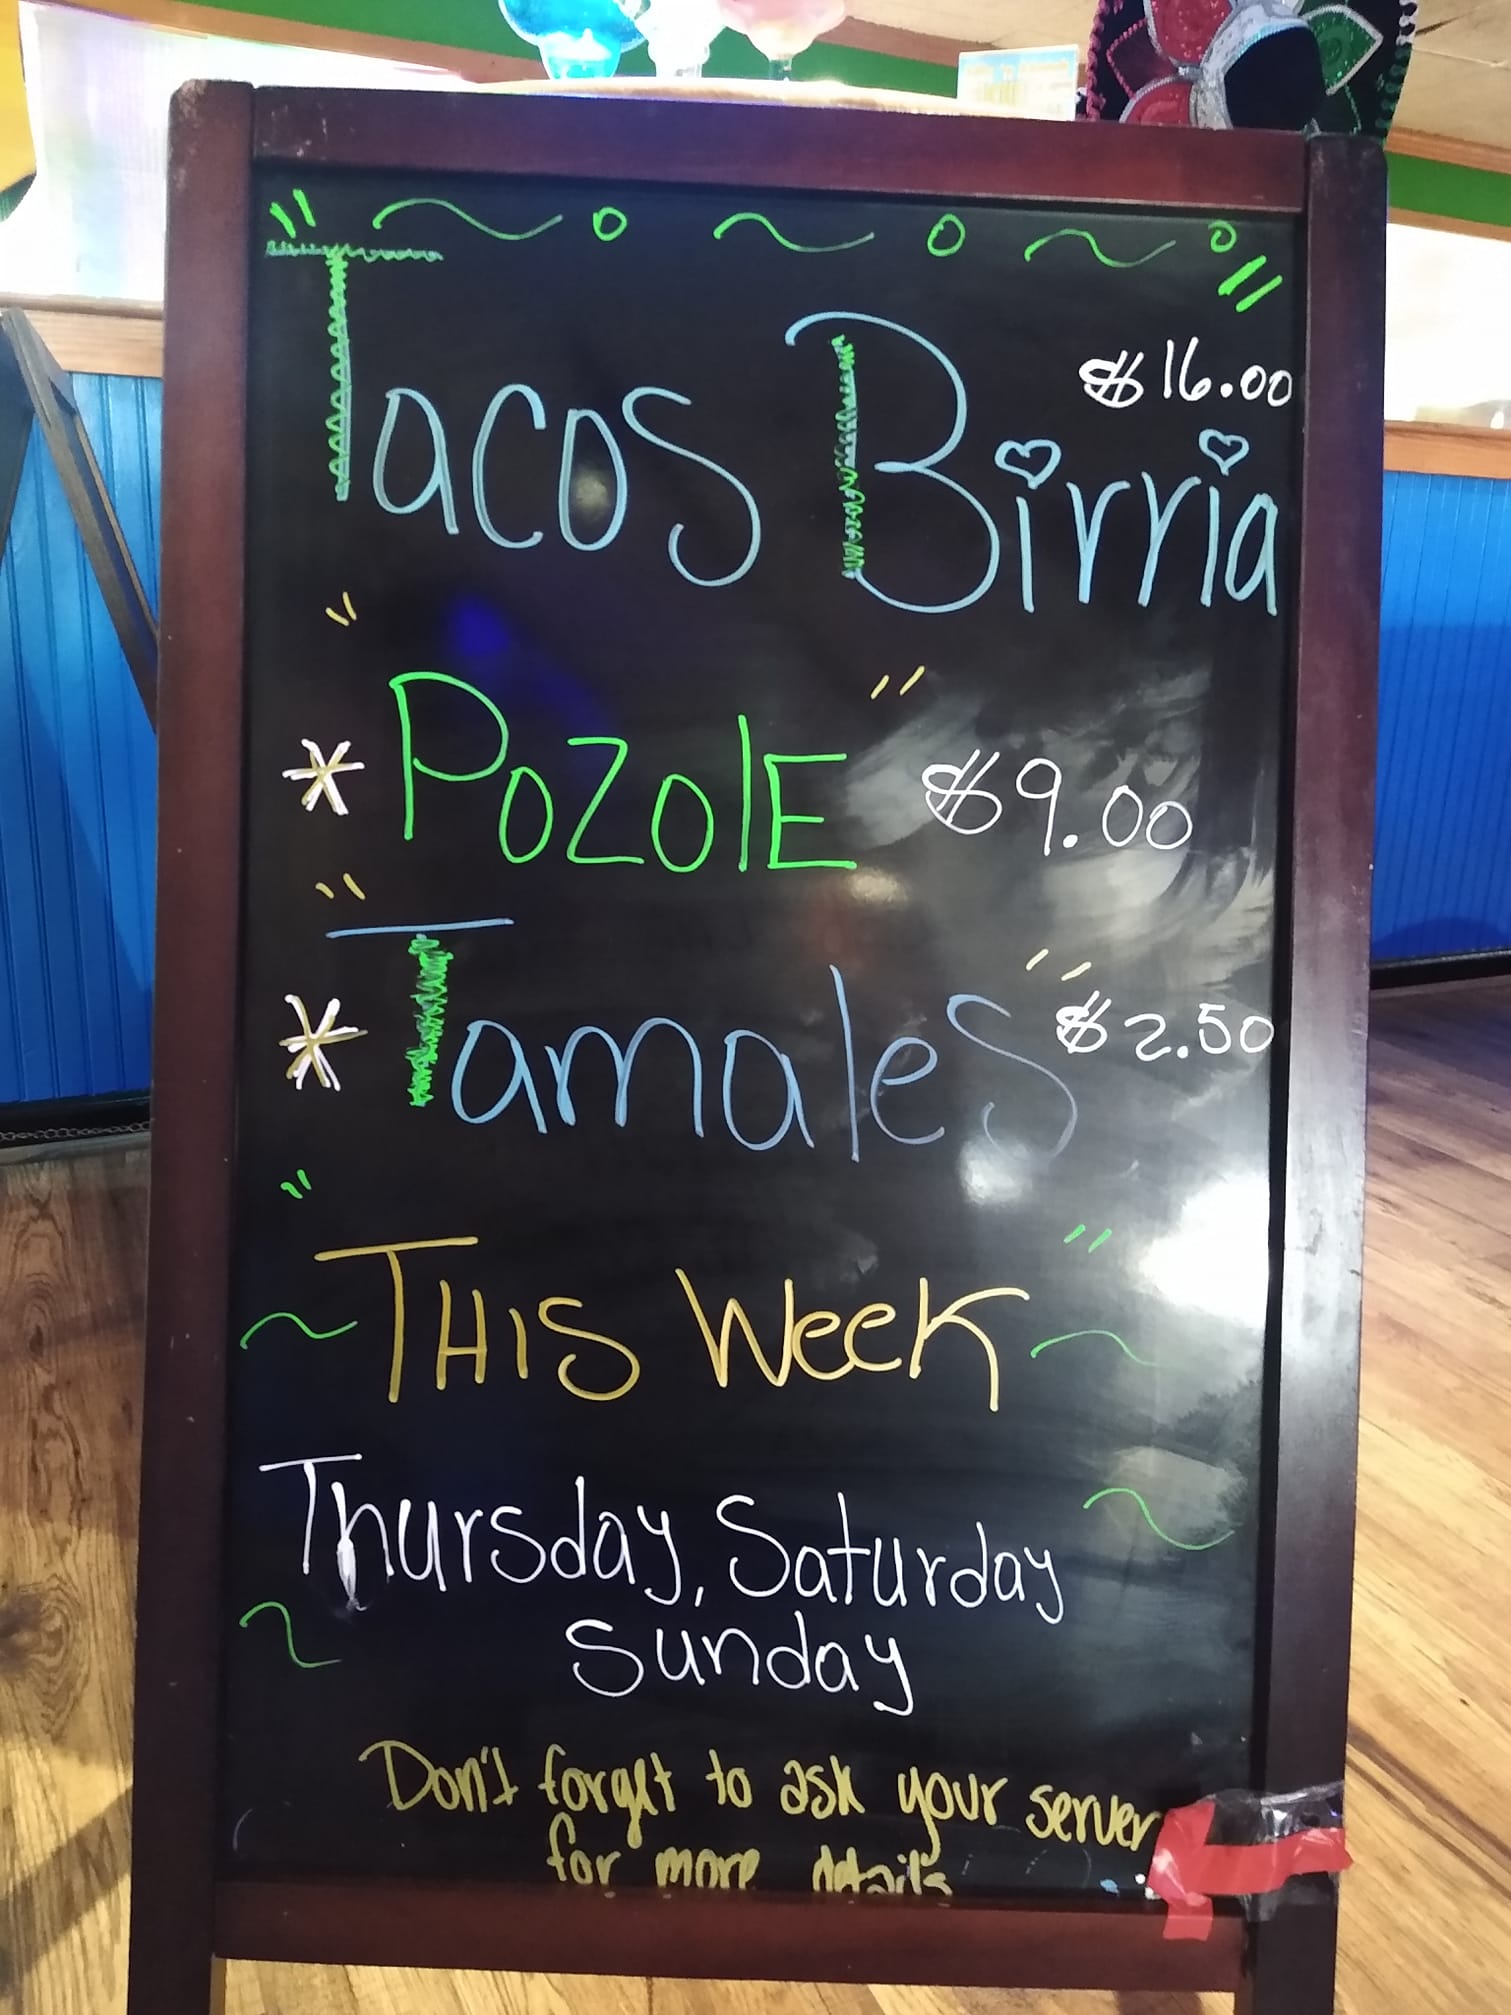 Tacos Birria $16.00
* PozolE $9.00
* Tamales $2.50
THIS Week
Thursday, Saturday
Sunday
Don't forget to ask your server
for more details